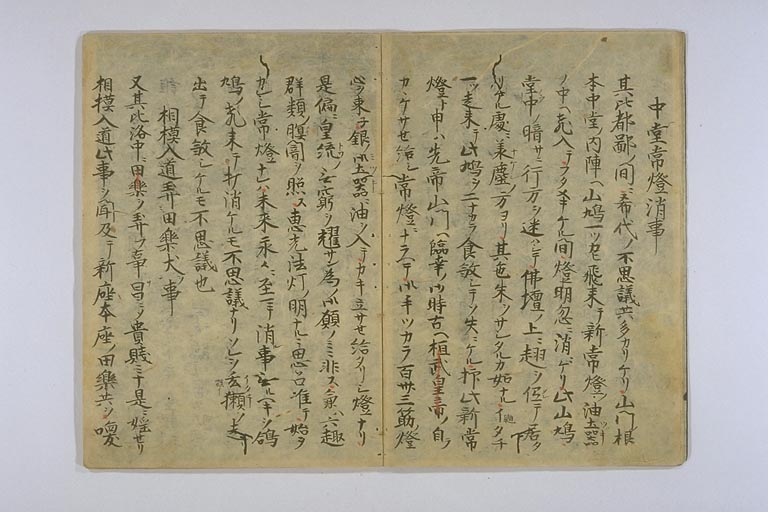 中堂常燈消事
其比都鄙ノ間ニ希代ノ不思議共多カリケリ山門根
本中堂内陣ヘ山鳩一ツカヒ飛来テ新常燈ノ油土器
ノ中ヘ飛入テフタメキケル間燈明忽ニ消ケリ此山鳩
堂中ノ暗サニ行方ヲ迷ヒテ佛壇ノ上ニ翅ヲ低テ居タ
リケル處ニ梁塵ノ方ヨリ其色朱ヲサシタル如ナルイタチ
一ツ走来テ此鳩ヲ二ナカラ食殺シテソ失ニケル抑此新常
燈ト申ハ先帝山門ヘ臨幸ノ時古ヘ桓武皇帝ノ自ラ
カヽケサセ給シ常燈ニナラヘテ御手ツカラ百廿三筋燈
心ヲ束子銀ノ御土器ニ油ヲ入テカキ立サセ給ヘリシ燈ナリ
是偏ニ皇流ノ無窮ヲ耀サン為ノ御願ノミニ非ス兼ハ六趣
群類瞑闇ヲ照ス惠光法灯ノ明ナルニ思召准テ始ヲ
カレシ常燈ナレハ未来永々ニ至ルマテ消事ナカルヘキニ鴿
鳩ノ飛来テ打消ケルモ不思議ナリソレヲ玄獺ノ走
出テ食殺シケルモ不思議也
相模入道弄田樂并犬ノ事
又其比洛中ニ田樂ヲ弄フ事昌ニシテ貴賤ミナ是ニ婬セリ
相模入道此事ヲ聞及テ新座本座ノ田樂共ヲ喚